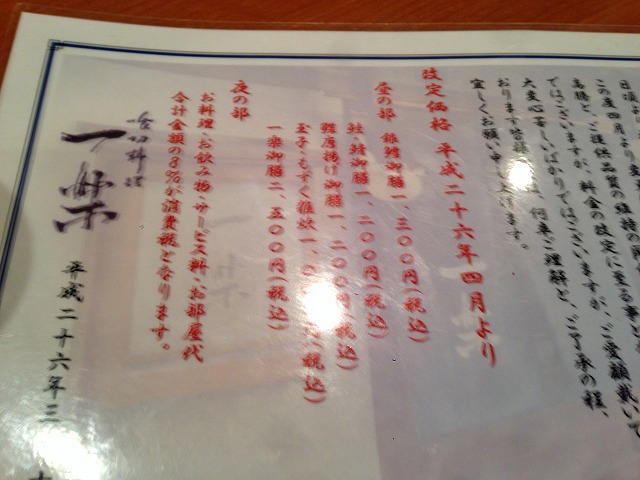 この度四月より
高騰と、ご提供品質の維持の
ではございますが、料金の改定に至る事
大変心苦しいばかりではございますが、ご愛顧戴いて
おります皆様 何卒ご理解と、ご了承の程、
宜しくお願い申し上げます。
改定価格 平成二十六年四月より
昼の部 銀鱈御膳一、三〇〇円(税込)
鮭・鯖御膳一、二〇〇円(税込)
御膳一、二〇〇円(税込)
玉子・もずく雑炊一、〇 (税込)
一楽御膳二、五〇〇円(税込)
夜の部
お料理・お飲み物・サービス料・お部屋代
合計金額の8%が消費税と奈ります。
一楽
平成二十六年三